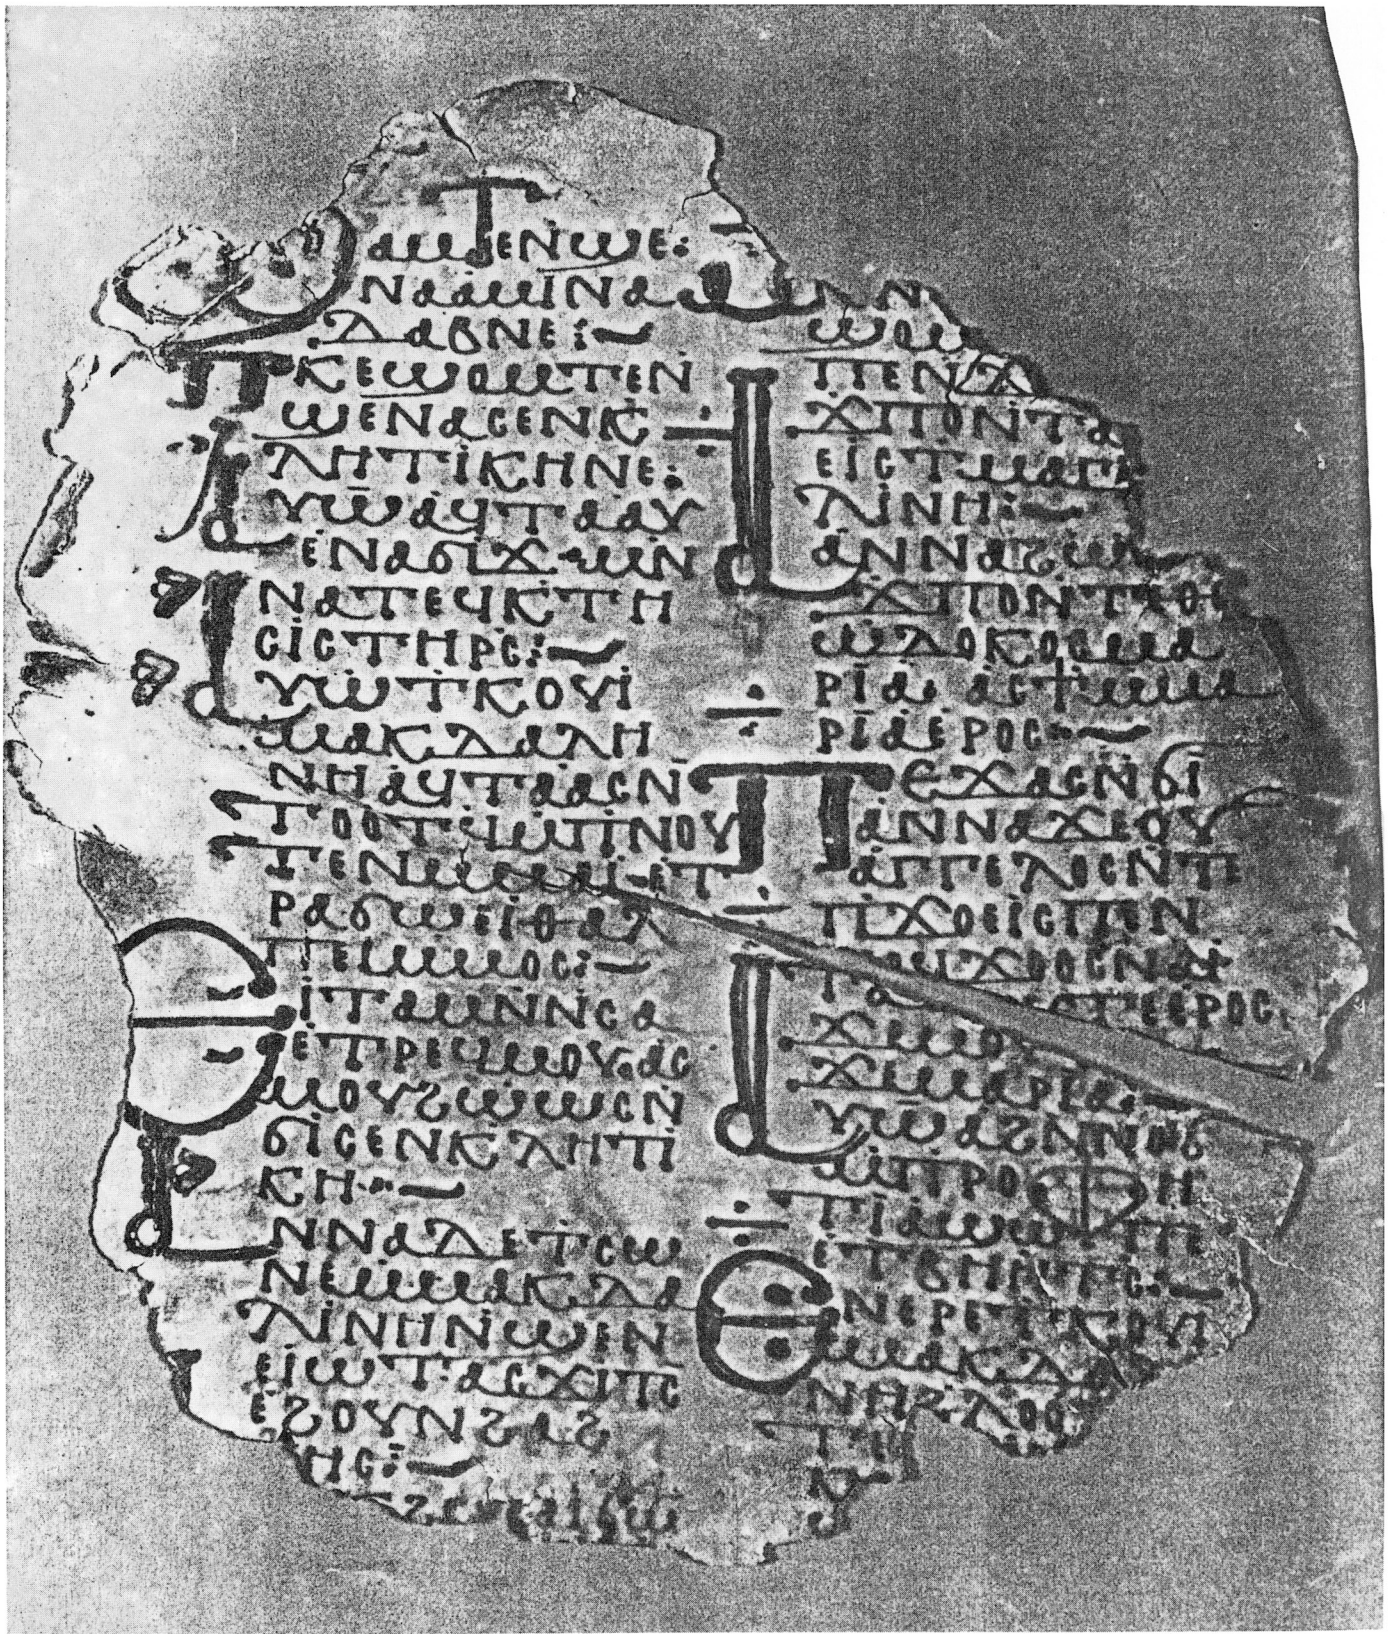 ⲁⲙⲉⲛϣⲉ:
ⲛⲁⲁⲙⲓⲛⲁ
ⲇⲁⲃⲛⲉ:—
ⲡⲕⲉϣⲟⲙⲧⲉⲛ
ϣⲉⲛⲁⲥⲉⲛⲕ
ⲗⲏⲧⲓⲕⲏⲛⲉ:
ⲁⲩⲱⲁϥⲧⲁⲁⲩ
ⲉⲛⲁϭⲓϫ·ⲙⲛ
ⲛⲁⲧⲉϥⲕⲧⲏ
ⲥⲓⲥⲧⲏⲣⲥ:—
ⲁⲩⲱⲧⲕⲟⲩⲓ
ⲙⲁⲕⲇⲁⲗⲏ
ⲛⲏⲁϥⲧⲁⲁⲥⲛ
ⲧⲟⲟⲧϥⲙⲡⲛⲟⲩ
ⲧⲉⲛⲙⲙⲁⲓⲉⲧ
ⲣⲁϭⲱⲉⲓⲑⲁⲗ
ⲡⲉⲙⲙⲟⲥ:—
ⲉⲓⲧⲁⲙⲛⲛⲥⲁ
ⲉⲧⲣⲉϥⲙⲟⲩ·ⲁⲥ
ⲙⲟⲩϩⲱⲱⲥⲛ
ϭⲓⲥⲉⲛⲕⲗⲏⲧⲓ
ⲕⲏ:—
ⲁⲛⲛⲁⲇⲉⲧⲥⲱ
ⲛⲉⲙⲙⲁⲕⲇⲁ
ⲗⲓⲛⲏⲛϣⲉⲛ
ⲉⲓⲱⲧ·ⲁⲥϫⲓⲧⲥ
ⲉϩⲟⲩⲛϩⲁϩ
ⲧⲏⲥ:—
ⲡⲉⲛϫ
ϫⲡⲟⲛⲧⲁ
ⲉⲓⲥⲧⲙⲁⲅ
ⲗⲓⲛⲏ:—
ⲁⲁⲛⲛⲁϩⲱ
ϫⲡⲟⲛⲧⲁⲑⲉ
ⲱⲇⲟⲕⲟⲥⲙⲁ
ⲣⲓⲁ· ⲁⲥϯⲙⲙⲁ
ⲣⲓⲁⲉⲣⲟⲥ:—
ⲡⲉϫⲁⲥⲛϭⲓ
ⲁⲛⲛⲁϫⲉⲟⲩ
ⲁⲅⲅⲉⲗⲟⲥⲛⲧⲉ
ⲡϫⲟⲉⲓⲥⲡⲉⲛ
ⲧⲁϥϫⲟⲟⲥⲛⲁⲓ
ϫⲉⲙⲁⲣⲓⲁ·
ⲁⲩⲱⲁϩⲛⲛⲟϭ
ⲙⲡⲣⲟⲫⲏ
ⲧⲓⲁϣⲱⲡⲉ
ⲉⲧⲃⲏⲏⲧⲥ:—
ⲉⲛⲉⲣⲉⲧⲕⲟⲩⲓ
ⲙⲙⲁⲕⲇⲁ
ⲛⲏϩⲗⲟϭ